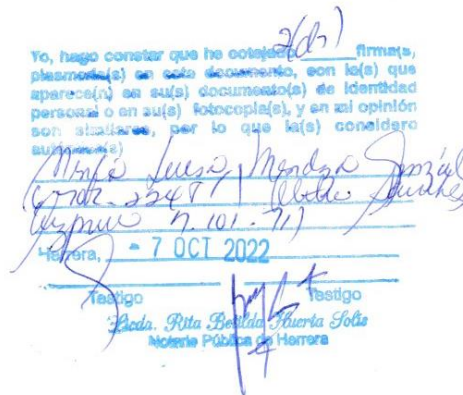 Yo, hago constar que he cotejado 2(ds) firma(s,
plasmada(s) en este documento, con lo(s) que
aparece(n) en su(s) documento(s) de identidad
personal o en su(s) fotocopia(s), y en mi opinión
son similares, por lo que la(s) considero
auténtica(s)
María Luisa Mendoza González
Herrera, - 7 OCT 2022
Testigo Testigo
Licda. Rita Betilda Huerta Solís
Notaria Pública de Herrera